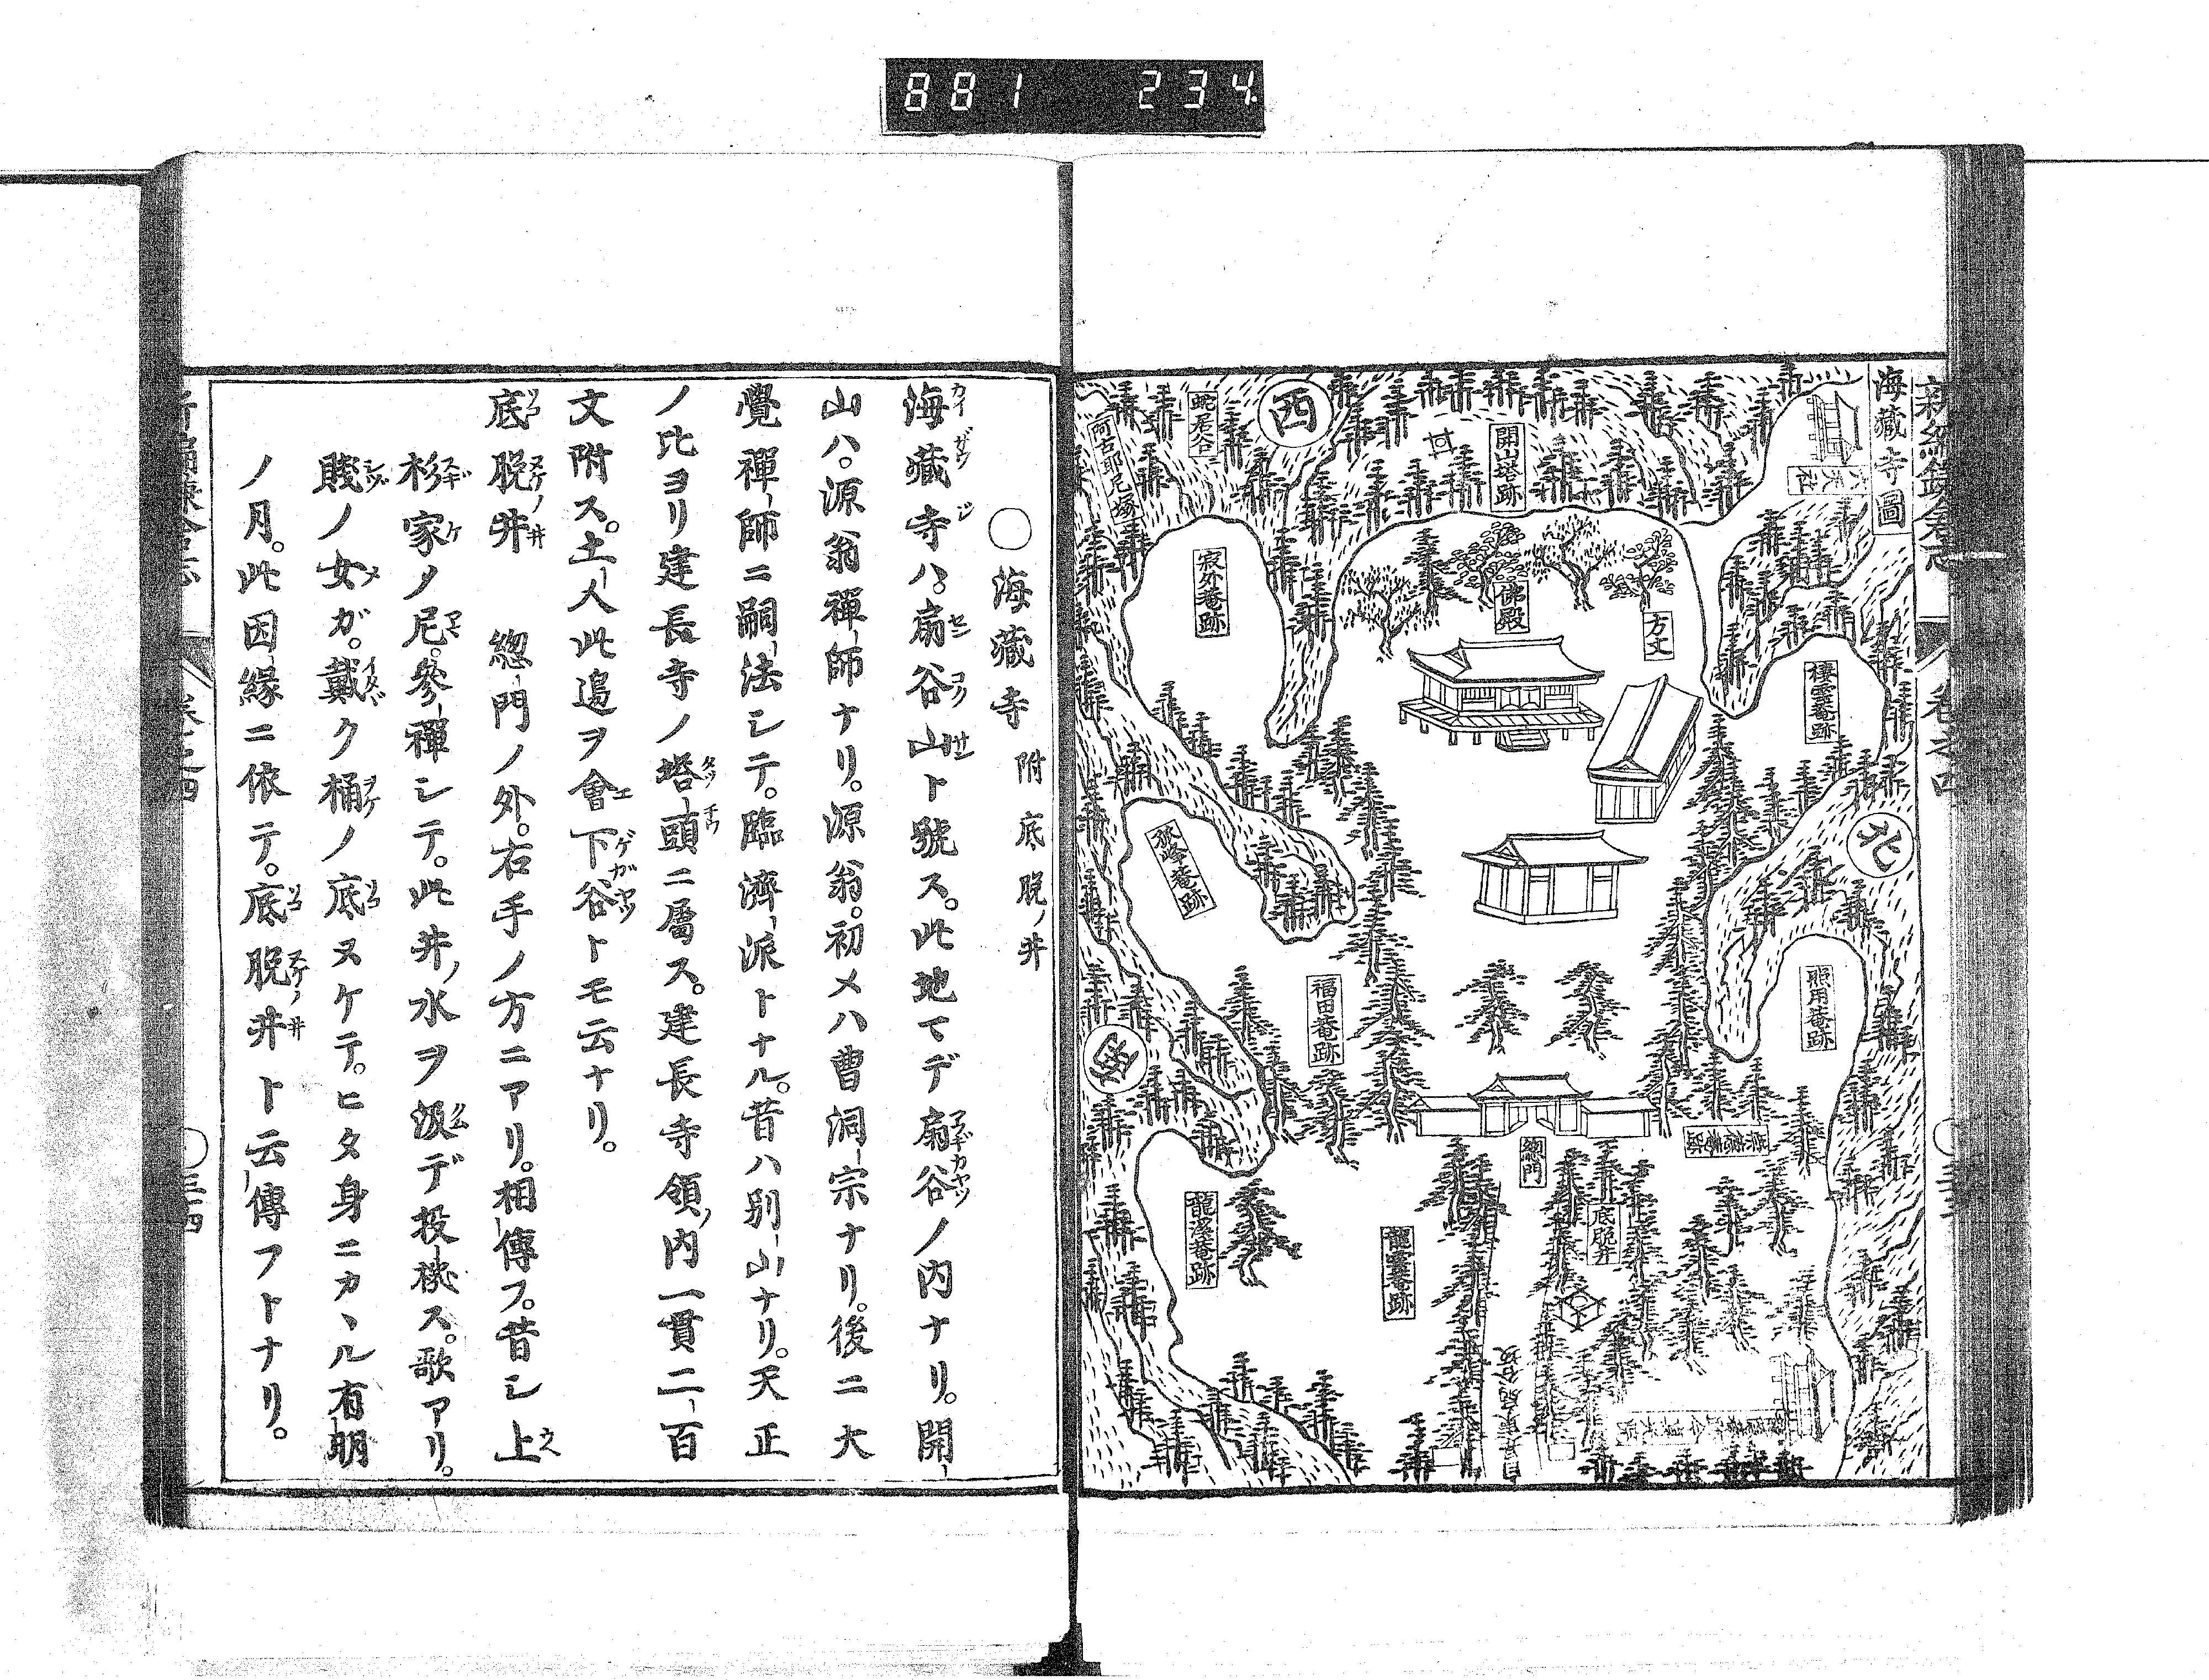 881 234
新編鎌倉志
卷之四
海藏寺圖
六天社
開山塔跡
西
蛇居谷
阿古耶尼塚
寂外菴跡
佛殿
方丈
棲雲菴跡
北
孤峰菴跡
福田菴跡
照用菴跡
南
總門
龍溪菴跡
龍雲菴跡
底脱井
○海藏寺 附底脱ノ井
海藏寺ハ、扇谷山ト號ス。此地マデ扇谷ノ内ナリ。開
山ハ。源翁禪師ナリ。源翁。初メハ曹洞宗ナリ。後ニ大
覺禪師ニ嗣法シテ。臨濟派トナル。昔ハ別山ナリ。天正
ノ比ヨリ建長寺ノ塔頭ニ屬ス。建長寺領ノ内一貫二百
文附ス。土人此邉ヲ會下谷トモ云ナリ。
底脱井 總門ノ外。右手ノ方ニアリ。相傳フ。昔シ上
杉家ノ尼。參禪シテ。此井ノ水ヲ汲デ投機ス。歌アリ。
賤ノ女ガ。戴ク桶ノ底ヌケテ。ヒタ身ニカヽル有明
ノ月。此因緣ニ依テ。底脱井ト云傳フトナリ。
新編鎌倉志
卷之四
三四